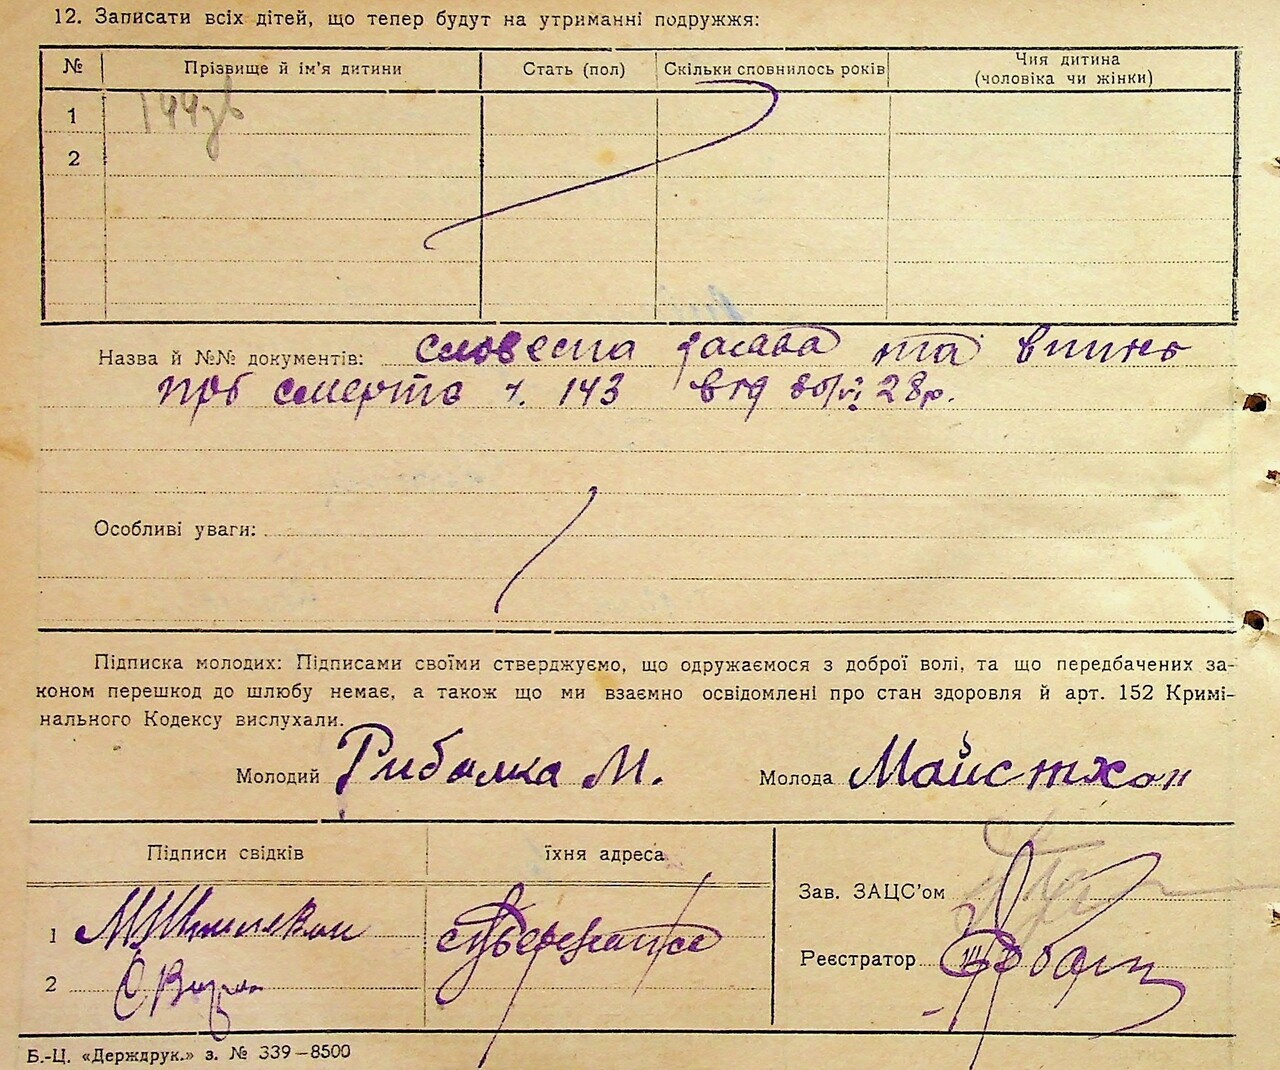 12. Записати всіх дітей, що тепер будут на утриманні подружжя:
№ Прізвище й ім'я дитини Стать (пол) Скільки сповнилось років Чия дитина (чоловіка чи жінки)
1
2
Назва й №№ документів: словесна заява та випис
про смерть ч. 143 від 28р.
Особливі уваги:
Підписка молодих: Підписами своїми стверджуємо, що одружаємося з доброї волі, та що передбачених за-
коном перешкод до шлюбу немає, а також що ми взаємно освідомлені про стан здоровля й арт. 152 Кримі-
нального Кодексу вислухали.
Молодий Рибалка М. Молода
Підписи свідків їхня адреса
Зав. ЗАЦС'ом
1
Реєстратор
2
Б.-Ц. «Держдрук.» з. № 339—8500